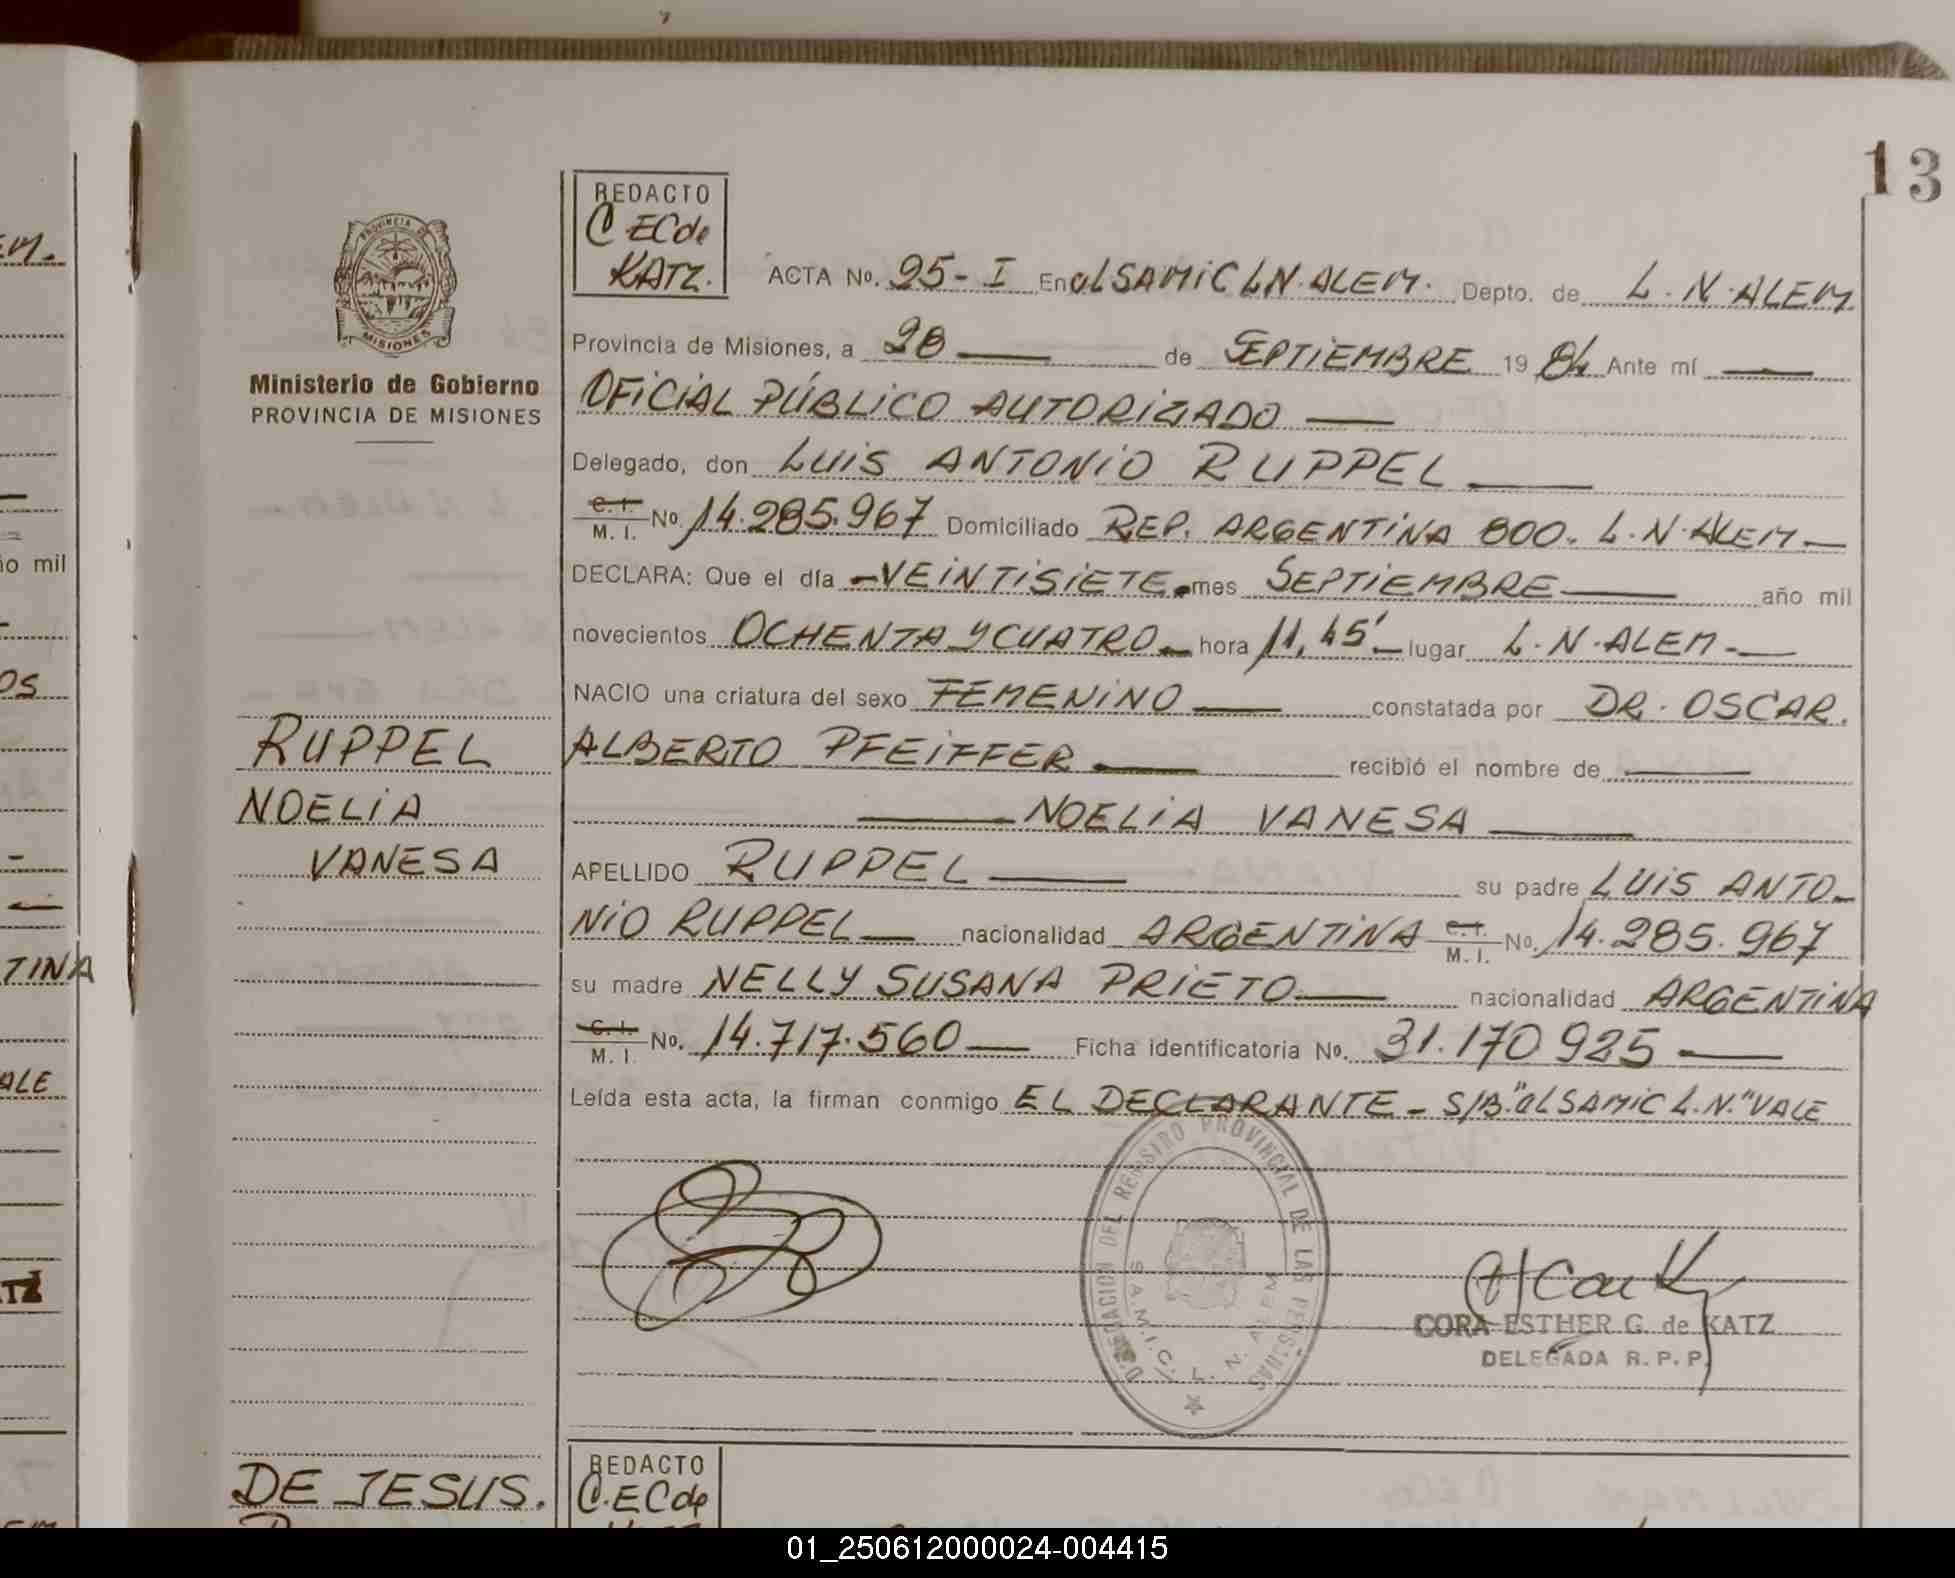 13
REDACTO
C EC de
KATZ.
ACTA No. 25-I En al SAMIC L.N. ALEM. Depto. de L.N. ALEM
PROVINCIA DE
MISIONES
Ministerio de Gobierno
PROVINCIA DE MISIONES
Provincia de Misiones, a 28 — de SEPTIEMBRE 19 84 Ante mí —
OFICIAL PÚBLICO AUTORIZADO —
Delegado, don LUIS ANTONIO RUPPEL —
C. I. M. I. No. 14.285.967 Domiciliado REP. ARGENTINA 800. L.N. ALEM —
DECLARA: Que el día - VEINTISIETE - mes SEPTIEMBRE — año mil
novecientos OCHENTA Y CUATRO - hora 11,45' - lugar L.N. ALEM -
NACIO una criatura del sexo FEMENINO — constatada por DR. OSCAR.
ALBERTO PFEIFFER — recibió el nombre de —
— NOELIA VANESA —
APELLIDO RUPPEL — su padre LUIS ANTO-
NIO RUPPEL — nacionalidad ARGENTINA C. I. M. I. No. 14.285.967
su madre NELLY SUSANA PRIETO — nacionalidad ARGENTINA
C. I. M. I. No. 14.717.560 — Ficha identificatoria No. 31.170925 —
Leída esta acta, la firman conmigo EL DECLARANTE - S/B. "al SAMIC L.N." VALE
RUPPEL
NOELIA
VANESA
DELEGACION DEL REGISTRO PROVINCIAL DE LAS PERSONAS
S.A.M.I.C. L. N. ALEM
CORA ESTHER G. de KATZ
DELEGADA R. P. P.
DE JESUS.
REDACTO
C. EC de
EM.
ño mil
OS
TINA
ALE
TZ
01_250612000024-004415